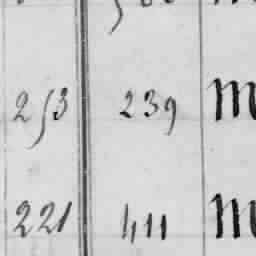 253 239 m
221 411 m